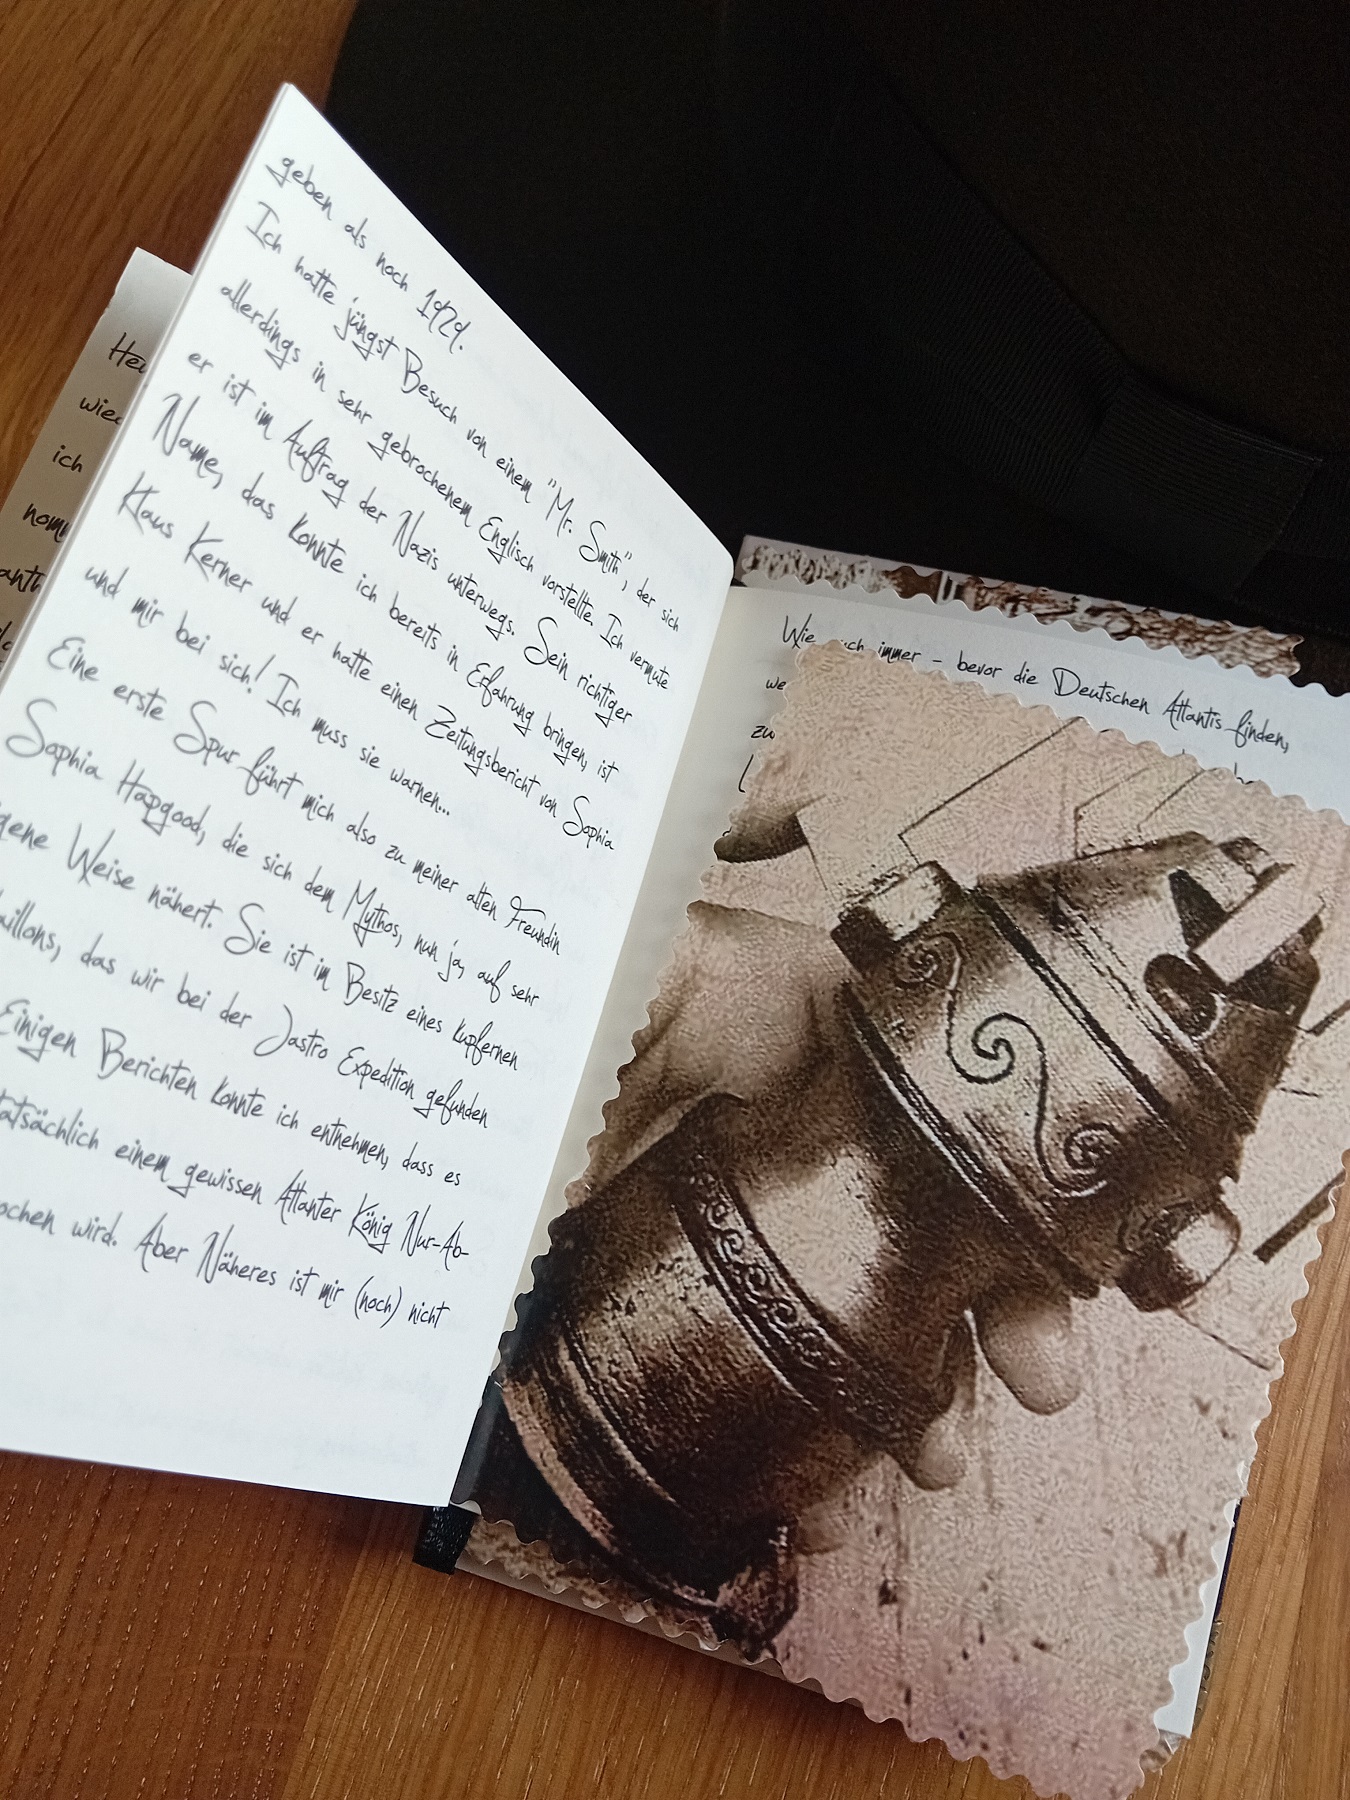 Heu
wiec
ich
nom
anth
geben als noch 1929.
Ich hatte jüngst Besuch von einem "Mr. Smith", der sich
allerdings in sehr gebrochenem Englisch vorstellte. Ich vermute
er ist im Auftrag der Nazis unterwegs. Sein richtiger
Name, das konnte ich bereits in Erfahrung bringen, ist
Klaus Kerner und er hatte einen Zeitungsbericht von Sophia
und mir bei sich! Ich muss sie warnen...
Eine erste Spur führt mich also zu meiner alten Freundin
Sophia Hapgood, die sich dem Mythos, nun ja, auf sehr
igene Weise nähert. Sie ist im Besitz eines kupfernen
aillons, das wir bei der Jastro Expedition gefunden
Einigen Berichten konnte ich entnehmen, dass es
tatsächlich einem gewissen Atlanter König Nur-Ab-
ochen wird. Aber Näheres ist mir (noch) nicht
Wie auch immer - bevor die Deutschen Atlantis finden,
we
zu